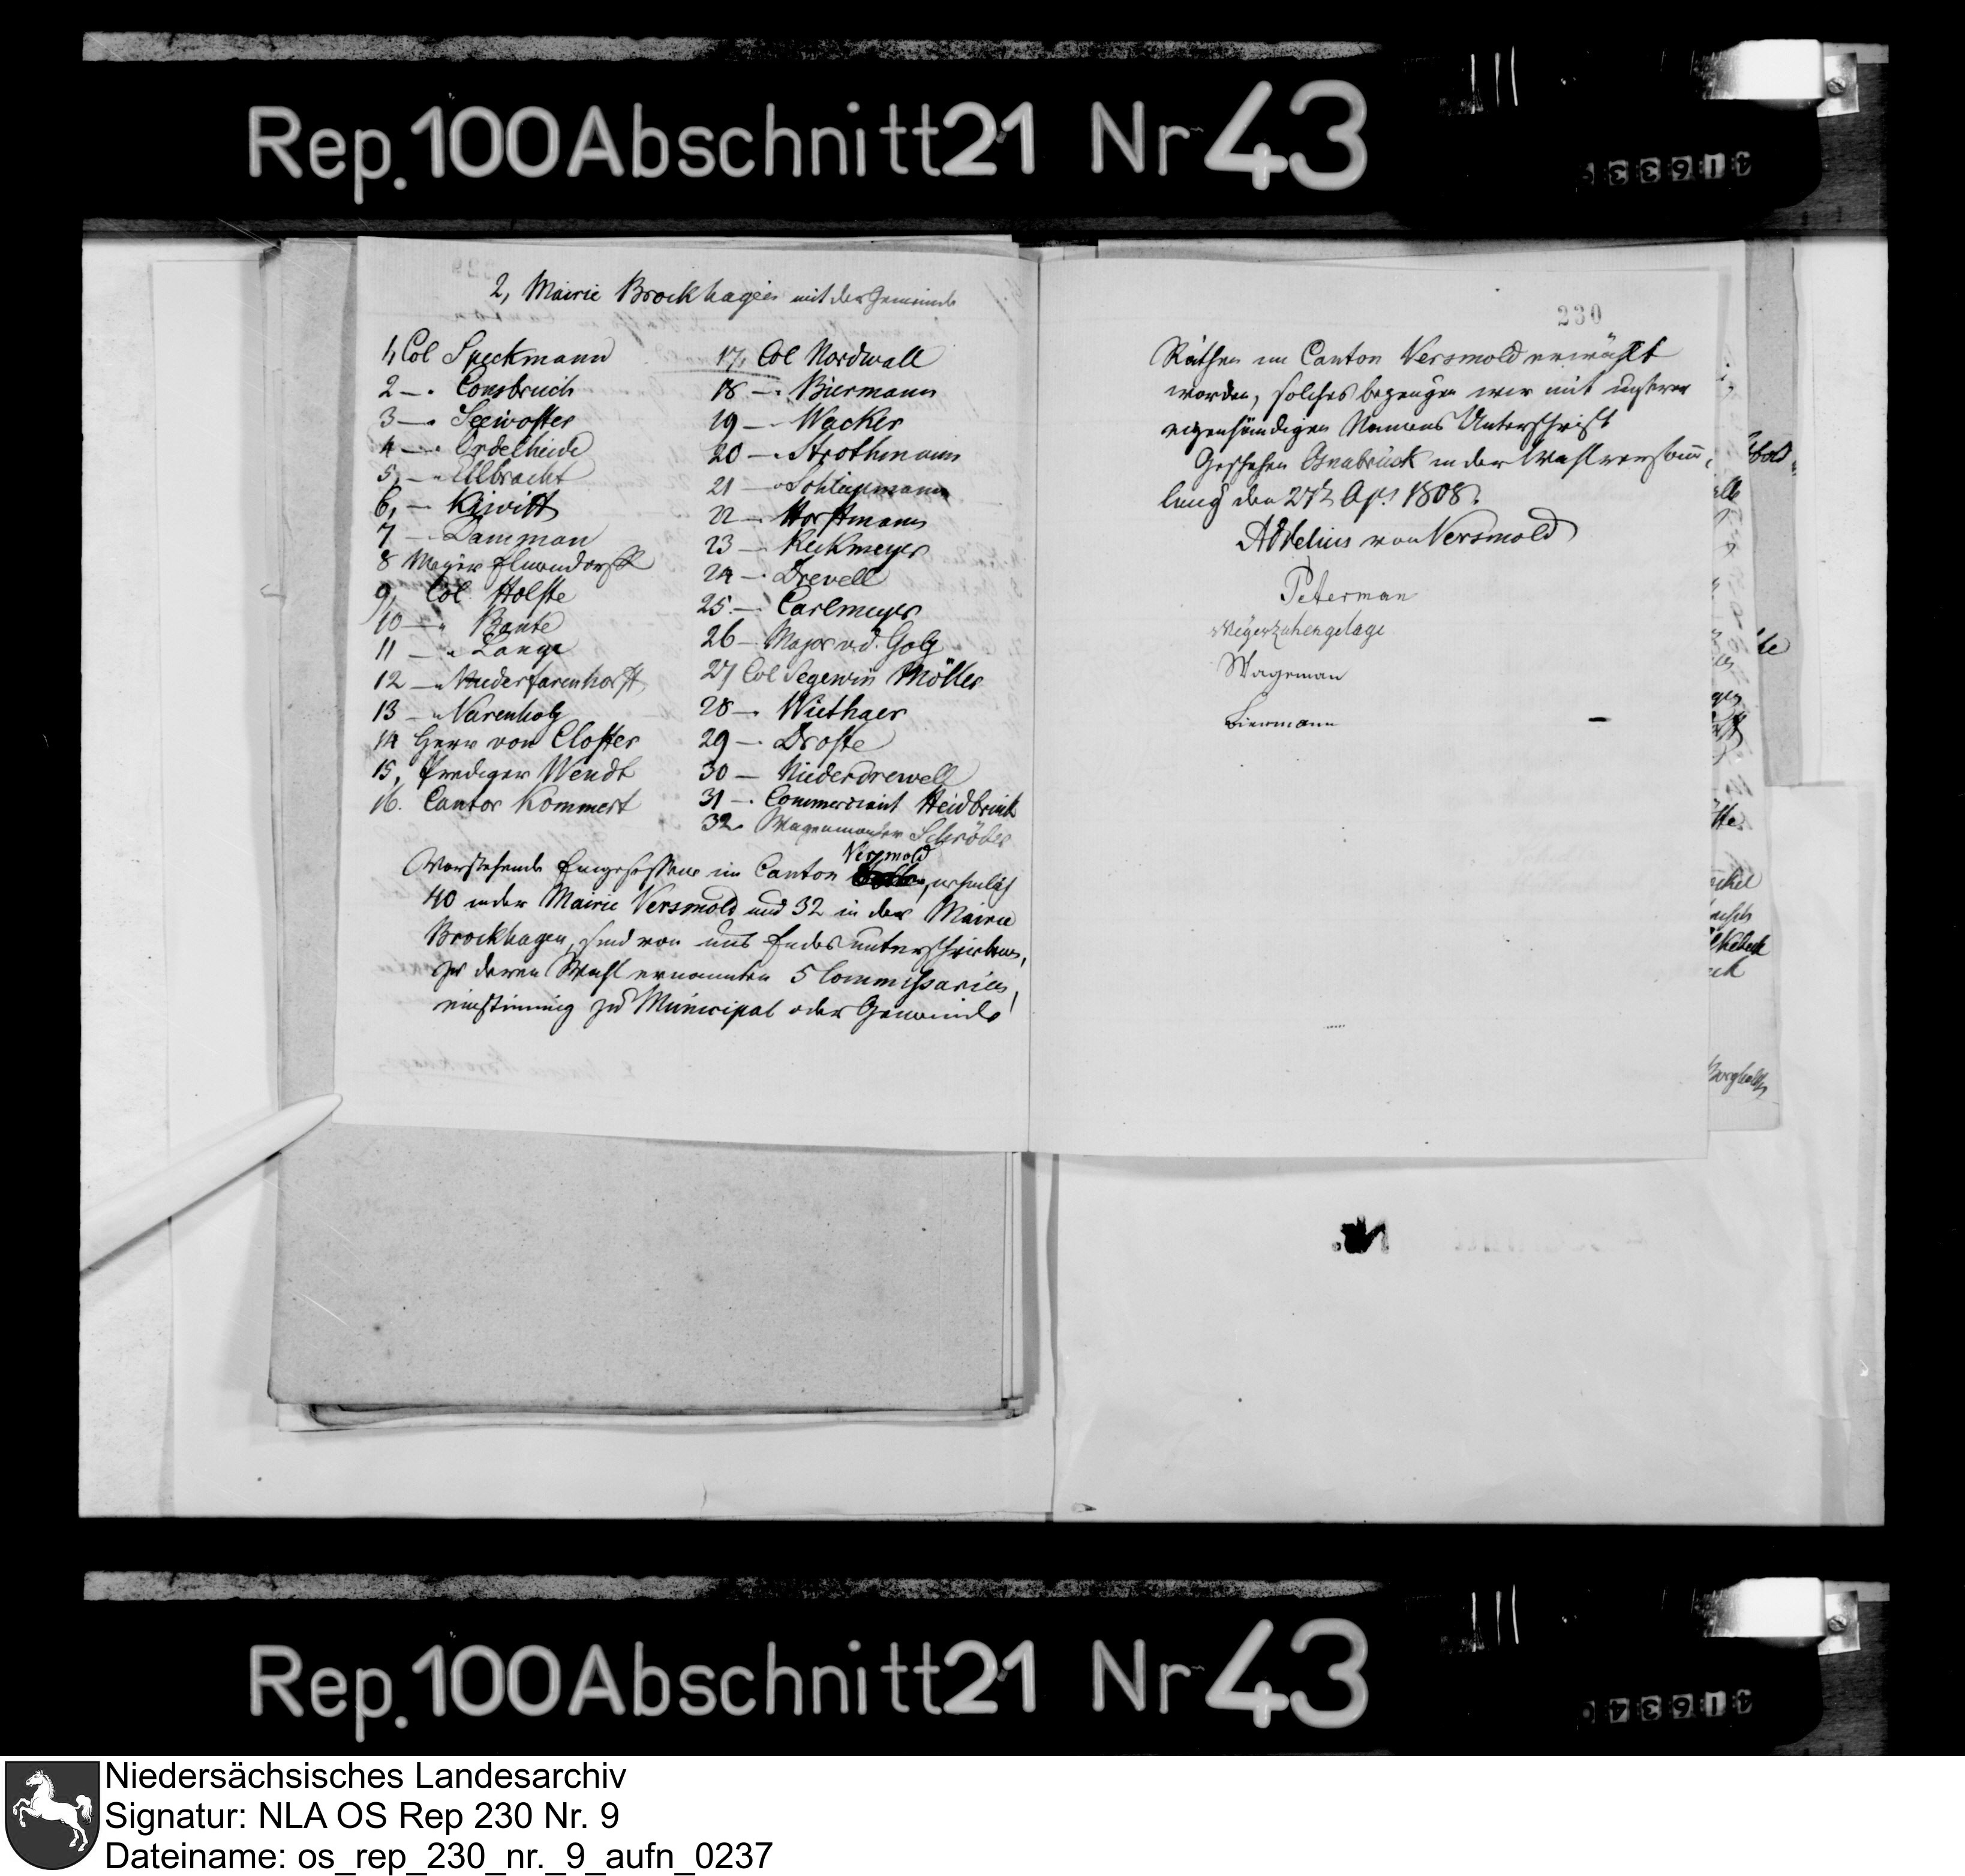 Rep. 100 Abschnitt 21 Nr 43
41633
2, Mairie Brockhagen mit der Gemeinde
1, Col Speckmann
2 — . Consbruch
3 — . Seewoster
4 — " Ordelheide
5, — " Ellbracht
6, — Kiwitt
7 — Damman
8 Meyer
9, Col Holste
10 — " Bante
11 — " Lange
12 — " Niederfarenhorst
13 — " Varenholz
14 Herr von Closter
15, Prediger Wendt
16. Cantor Kommert
17, Col Nordwall
18 — . Biermann
19 — Wacker
20 — " Strothmann
21 — " Schlapmann
22 — . Horstmann
23 — . Reckmeyer
24 — . Drevell
25. — . Carlmeyer
26 — Major v. d. Golz
27 Col Segewin Möller
28 — . Wiethaer
29 — . Droste
30 — Niederdrewell
31 — . Commerciant Heidbrink
32. Schröder
Vorstehende Eingesessene im Canton Versmold, nehmlich
40 in der Mairie Versmold und 32 in der Mairie
Brockhagen, sind von uns Endes unterschriebenen,
zu deren Wahl ernannten 5 Commissarien,
einstimmig zu Municipal oder Gemeinde
230
Räthen im Canton Versmold erwählt
worden, solches bezeugen wir mit unserer
eigenhändigen Namens Unterschrift
Geschehen Osnabrück in der Wahlversamm,
lung den 27t Apr 1808.
Addelius von Versmold
Peterman
Meyerzuhengelage
Wageman
Biermann
Rep. 100 Abschnitt 21 Nr 43
41634
Niedersächsisches Landesarchiv
Signatur: NLA OS Rep 230 Nr. 9
Dateiname: os_rep_230_nr._9_aufn_0237